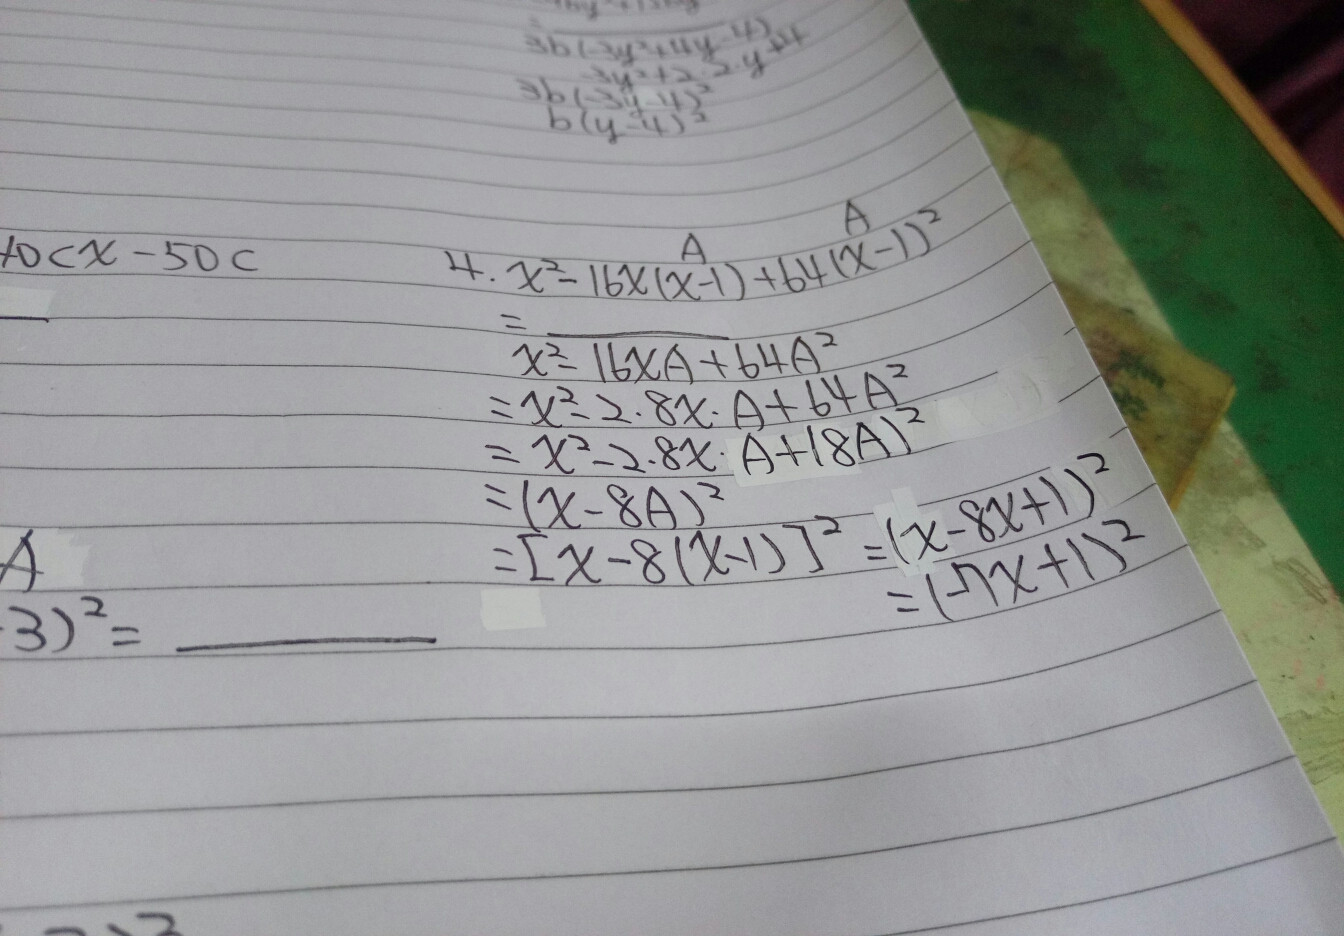 3b(-3y²+4y-4)
-3y²+2·2·y+4
3b(-3y-4)²
b(y-4)²
10cx-50c
A A
4. x²-16x(x-1)+64(x-1)²
=
x²-16xA+64A²
=x²-2·8x·A+64A²
=x²-2·8x·A+(8A)²
=(x-8A)²
=[x-8(x-1)]² =(x-8x+1)²
=(-7x+1)²
A
3)²=